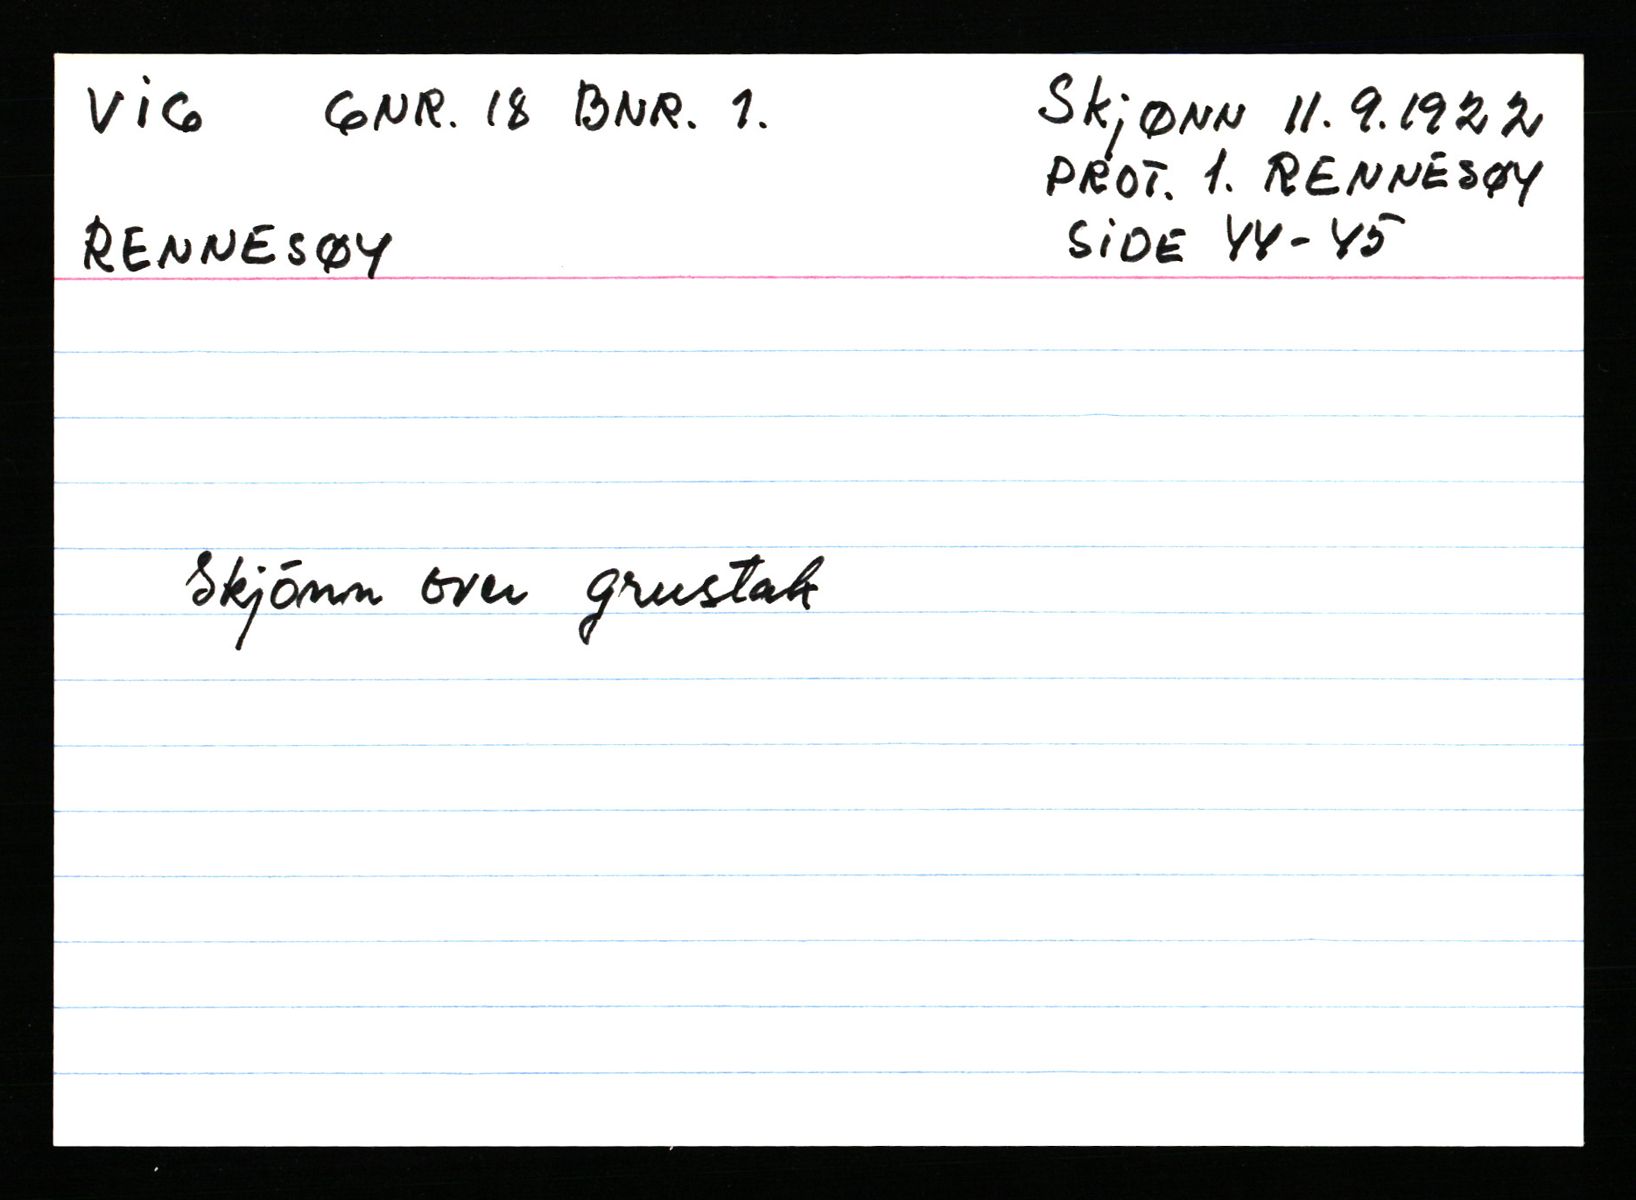 ViG GNR. 18 BNR. 1.
RENNESØY
SkjØNN 11.9.1922
PROT. 1. RENNESØY
SiDE 44-45
Skjönn over grustak